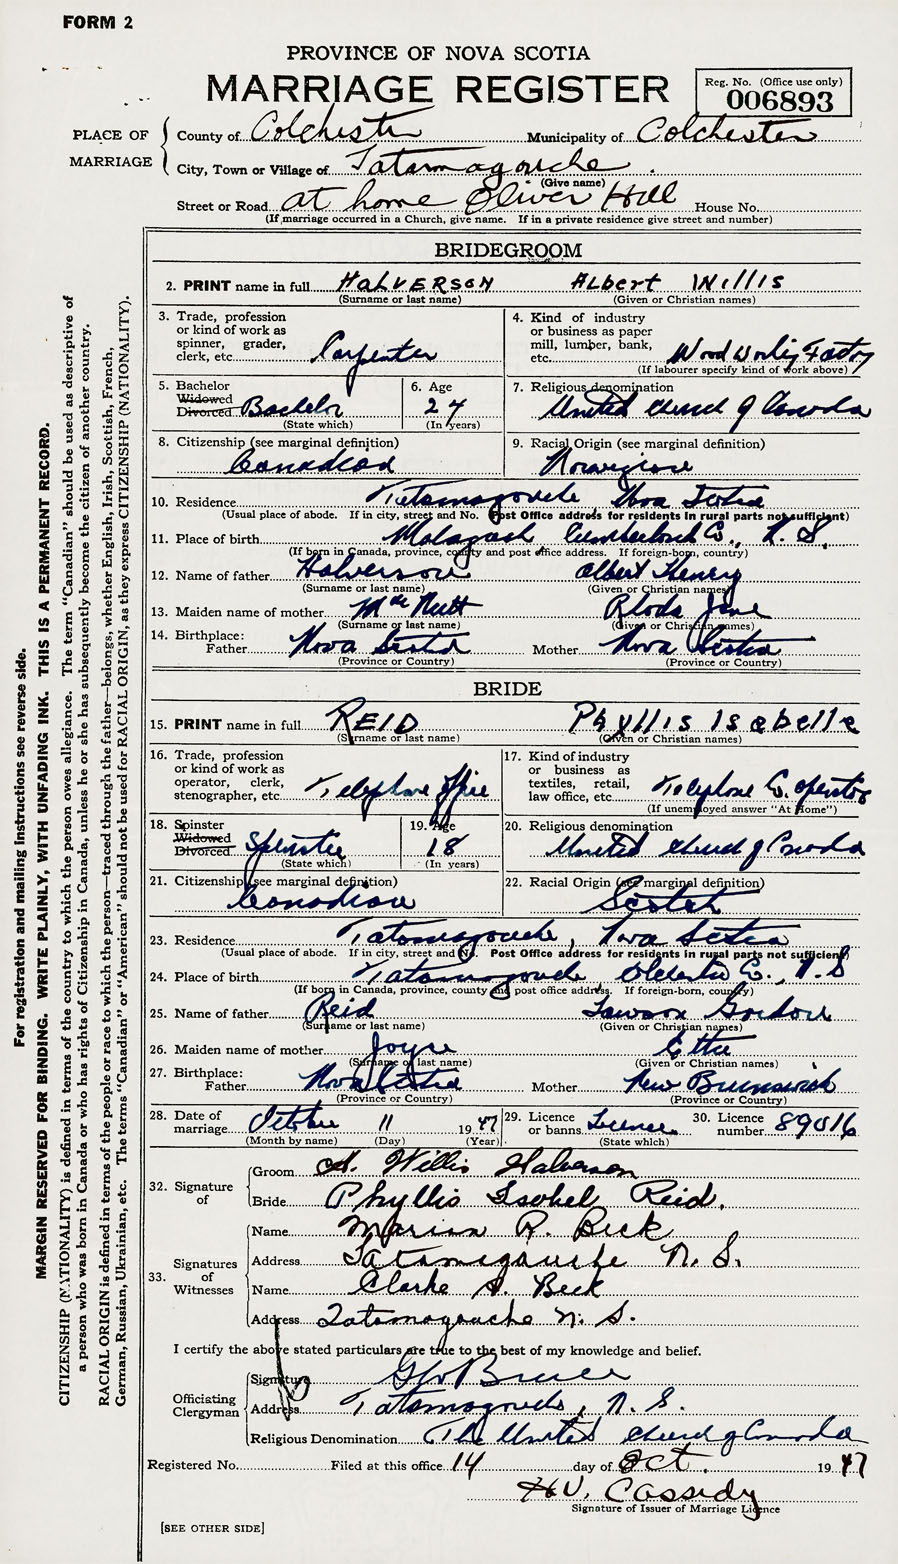 FORM 2
PROVINCE OF NOVA SCOTIA
MARRIAGE REGISTER
Reg. No. (Office use only)
006893
PLACE OF MARRIAGE
County of Colchester Municipality of Colchester
City, Town or Village of Tatamagouche
(Give name)
Street or Road at home Oliver Hill House No.
(If marriage occurred in a Church, give name. If in a private residence give street and number)
BRIDEGROOM
2. PRINT name in full HALVERSON Albert Willis
(Surname or last name) (Given or Christian names)
3. Trade, profession or kind of work as spinner, grader, clerk, etc. Carpenter
4. Kind of industry or business as paper mill, lumber, bank, etc. Wood working Factory
(If labourer specify kind of work above)
5. Bachelor Widowed Divorced Bachelor
(State which)
6. Age 24
(In years)
7. Religious denomination United Church of Canada
8. Citizenship (see marginal definition) Canadian
9. Racial Origin (see marginal definition) Norwegian
10. Residence Tatamagouche Nova Scotia
(Usual place of abode. If in city, street and No. Post Office address for residents in rural parts not sufficient)
11. Place of birth Malagash Cumberland Co., N. S.
(If born in Canada, province, county and post office address. If foreign-born, country)
12. Name of father Halverson Albert Henry
(Surname or last name) (Given or Christian names)
13. Maiden name of mother MacNutt Rhoda Jane
(Surname or last name) (Given or Christian names)
14. Birthplace:
Father Nova Scotia Mother Nova Scotia
(Province or Country) (Province or Country)
BRIDE
15. PRINT name in full REID Phyllis Isabelle
(Surname or last name) (Given or Christian names)
16. Trade, profession or kind of work as operator, clerk, stenographer, etc. Telephone Office
17. Kind of industry or business as textiles, retail, law office, etc. Telephone Co. operator
(If unemployed answer "At Home")
18. Spinster Widowed Divorced Spinster
(State which)
19. Age 18
(In years)
20. Religious denomination United Church of Canada
21. Citizenship (see marginal definition) Canadian
22. Racial Origin (see marginal definition) Scotch
23. Residence Tatamagouche, Nova Scotia
(Usual place of abode. If in city, street and No. Post Office address for residents in rural parts not sufficient)
24. Place of birth Tatamagouche Colchester Co., N. S
(If born in Canada, province, county and post office address. If foreign-born, country)
25. Name of father Reid Lawson Gordon
(Surname or last name) (Given or Christian names)
26. Maiden name of mother Joyce Etta
(Surname or last name) (Given or Christian names)
27. Birthplace:
Father Nova Scotia Mother New Brunswick
(Province or Country) (Province or Country)
28. Date of marriage October 11 1947
(Month by name) (Day) (Year)
29. Licence or banns License
(State which)
30. Licence number 89016
32. Signature of
Groom A. Willis Halverson
Bride Phyllis Isobel Reid.
33. Signatures of Witnesses
Name Marion R. Beck
Address Tatamagouche N. S.
Name Clarke A. Beck
Address Tatamagouche N. S.
I certify the above stated particulars are true to the best of my knowledge and belief.
Officiating Clergyman
Signature Geo Bruce
Address Tatamagouche, N. S.
Religious Denomination The United Church of Canada
Registered No. Filed at this office 14 day of Oct. 1947
H.V. Cassidy
Signature of Issuer of Marriage Licence
[SEE OTHER SIDE]
For registration and mailing instructions see reverse side.
MARGIN RESERVED FOR BINDING. WRITE PLAINLY, WITH UNFADING INK. THIS IS A PERMANENT RECORD.
CITIZENSHIP (NATIONALITY) is defined in terms of the country to which the person owes allegiance. The term "Canadian" should be used as descriptive of
a person who was born in Canada or who has rights of Citizenship in Canada, unless he or she has subsequently become the citizen of another country.
RACIAL ORIGIN is defined in terms of the people or race to which the person—traced through the father—belongs, whether English, Irish, Scottish, French,
German, Russian, Ukrainian, etc. The terms "Canadian" or "American" should not be used for RACIAL ORIGIN, as they express CITIZENSHIP (NATIONALITY).